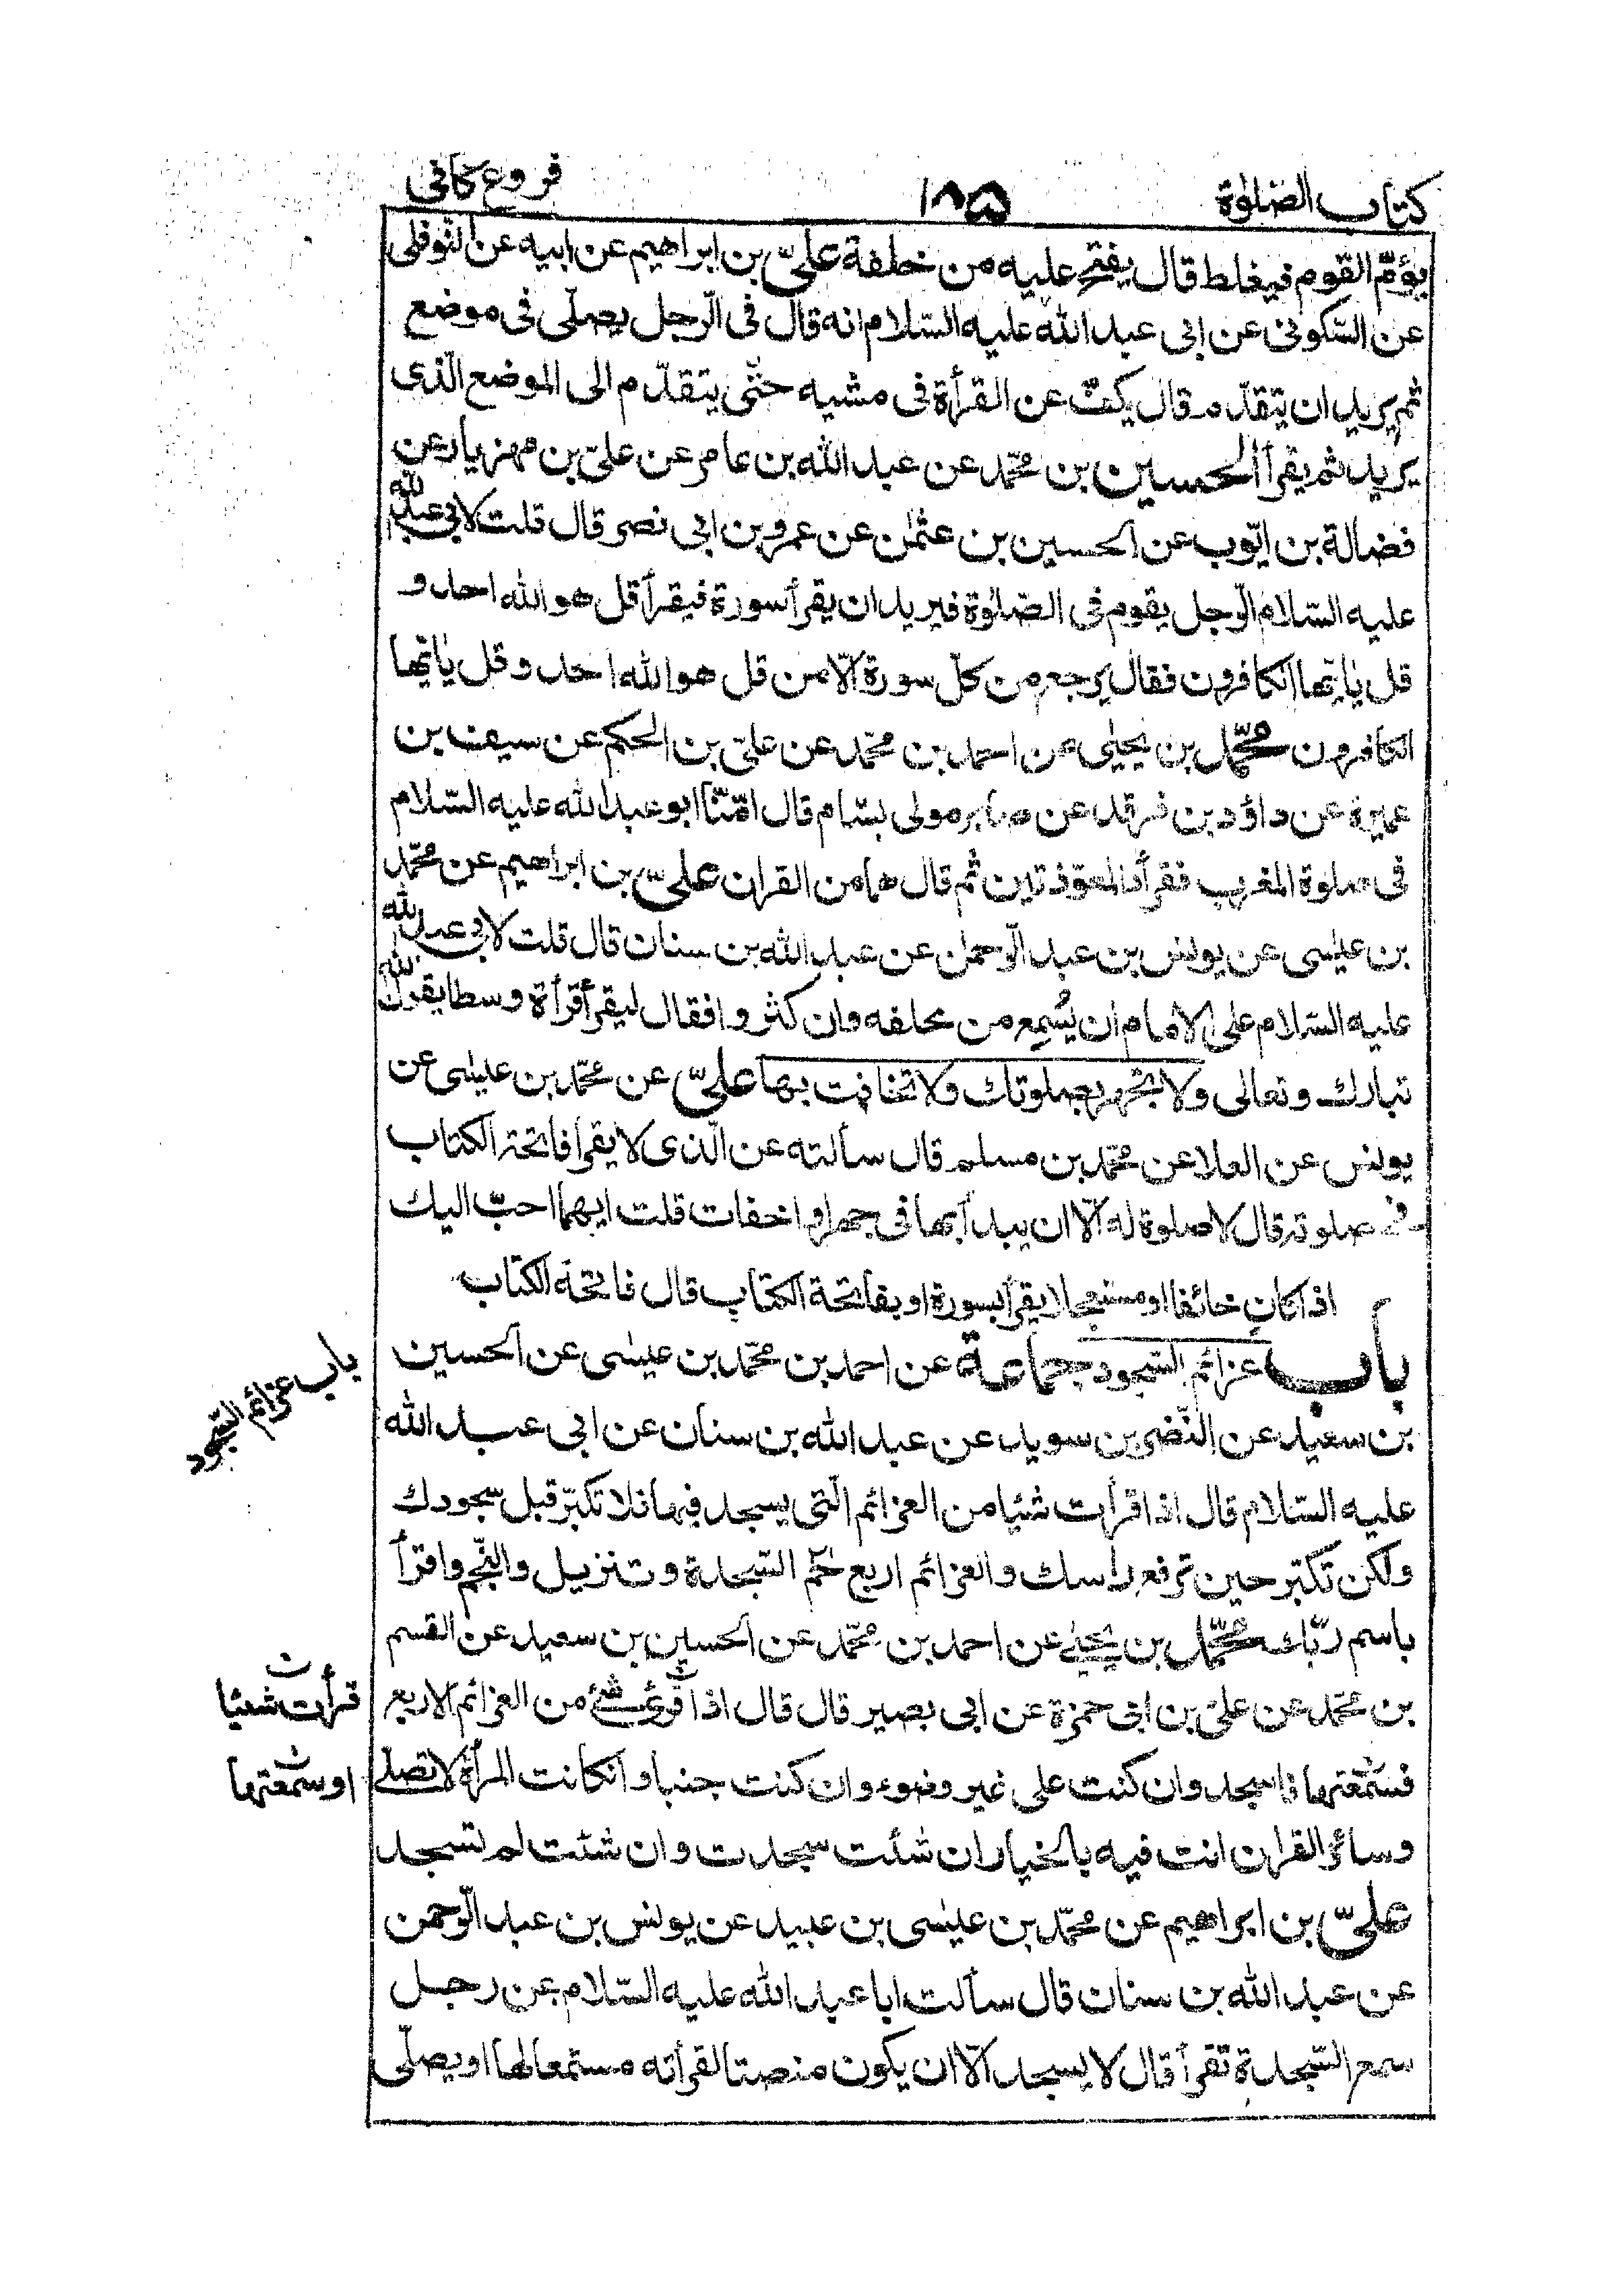 كتاب الصلوة
١٨٥
فروع كافى
يؤمّ القوم فيغلط قال يفتح عليه من خلفة علىّ بن ابراهيم عن ابيه عن النوفلى
عن السّكونى عن ابى عبد الله عليه السّلام انه قال فى الرّجل يصلّى فى موضع
ثم يريد ان يتقدّم قال يكفّ عن القرأة فى مشيه حتّى يتقدّم الى الموضع الّذى
يريد ثم يقرأ الحسين بن محمّد عن عبد الله بن عامر عن علىّ بن مهزيار عن
فضالة بن ايّوب عن الحسين بن عثمٰن عن عمرو بن ابى نصر قال قلت لابى عبد الله
عليه السّلام الرّجل يقوم فى الصّلوٰة فيريد ان يقرأ سورة فيقرأ قل هو الله احد و
قل يٰايّها الكافرون فقال يرجع من كلّ سورة الّا من قل هو الله احد وقل يٰايّها
الكافرون محمّد بن يحيٰى عن احمد بن محمّد عن علىّ بن الحكم عن سيف بن
عميرة عن داؤد بن فرقد عن صابر مولى بسّام قال امّنّا ابو عبد الله عليه السّلام
فى صلوة المغرب فقرأ المعوّذتين ثم قال هما من القران علىّ بن ابراهيم عن محمّد
بن عيسٰى عن يونس بن عبد الرّحمٰن عن عبد الله بن سنان قال قلت لابى عبد الله
عليه السّلام على الامام ان يُسْمِع من خلفه وان كثروا فقال ليقرأ قرأة وسطا يقول الله
تبارك وتعالى ولا تجهر بصلوتك ولا تخافت بها علىّ عن محمّد بن عيسٰى عن
يونس عن العلا عن محمّد بن مسلم قال سألته عن الّذى لا يقرأ فاتحة الكتاب
فى صلوته قال لا صلوة له الّا ان يبدأ بها فى جهر او اخفات قلت ايهما احبّ اليك
اذا كان خائفا او مستعجلا يقرأ بسورة او بفاتحة الكتاب قال فاتحة الكتاب
باب عزائم السّجود جماعة عن احمد بن محمّد بن عيسٰى عن الحسين
بن سعيد عن النّضر بن سويد عن عبد الله بن سنان عن ابى عبد الله
عليه السّلام قال اذا قرأت شئيا من العزائم الّتى يسجد فيها فلا تكبّر قبل سجودك
ولكن تكبّر حين ترفع راسك والعزائم اربع حٰم السّجدة وتنزيل والنّجم واقرأ
باسم ربّك محمّد بن يحيٰى عن احمد بن محمّد عن الحسين بن سعيد عن القسم
بن محمّد عن علىّ بن ابى حمزة عن ابى بصير قال قال اذا قرئ شئ من العزائم الاربع
فسمعتها فاسجد وان كنت على غير وضوء وان كنت جنبا وانكانت المرأة لا تصلّى
وسائر القران انت فيه بالخيار ان شئت سجدت وان شئت لم تسجد
علىّ بن ابراهيم عن محمّد بن عيسٰى بن عبيد عن يونس بن عبد الرّحمن
عن عبد الله بن سنان قال سألت ابا عبد الله عليه السّلام عن رجل
سمع السّجدة تقرأ قال لا يسجد الّا ان يكون منصتا لقرأته مستمعا لها او يصلّى
باب عزائم السّجود
قرأت شئيا
او سمعتها